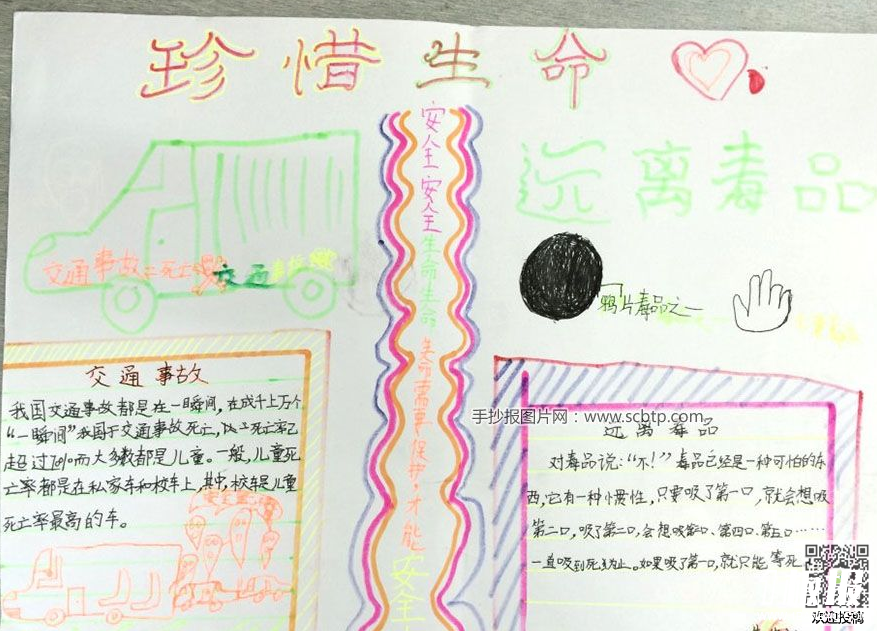 珍惜生命
远离毒品
交通事故=死亡
交通
鸦片毒品之一
安全安全生命生命生命需要保护,才能安全
交通事故
我国交通事故都是在一瞬间,在成千上万个
“一瞬间”我国于交通事故死亡,
超过70%而大多数都是儿童。一般,儿童死
亡率都是在私家车和校车上,其中,校车是儿童
死亡率最高的车。
手抄报图片网:www.scbtp.com
远离毒品
对毒品说:“不!”毒品已经是一种可怕的东
西,它有一种惯性,只要吸了第一口,就会想吸
第二口,吸了第二口,会想吸第三口、第四口、第五口……
一直吸到死为止。如果吸了第一口,就只能等死
欢迎投稿